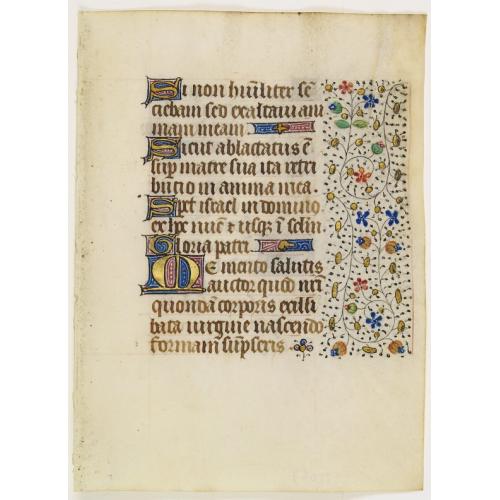 Si non hu̅iliter se̅
ciebam sed exaltaui ani
mam meam
Sicut ablactatus e̅
sup matre sua ita retri
butio in anima mea.
Spet israel in domino
ex hoc nu̅c & usq; i̅ seculu̅
Gloria patri
Memento salutis
auctor quod nr̅i
quonda̅ corporis ex illi
bata uirgine nascendo
formam su̅pseris